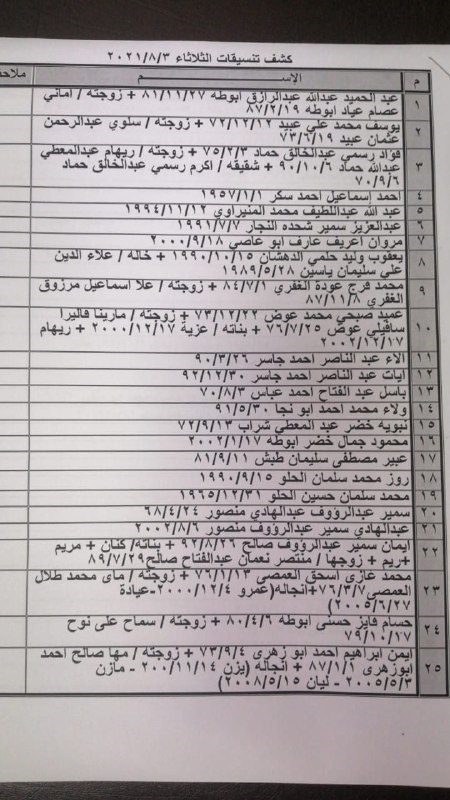 كشف تنسيقات الثلاثاء ٢٠٢١/٨/٣
م الاســـــم ملاحظ
١ عبد الحميد عبدالله عبدالرازق ابوطه ٨١/١١/٢٧ + زوجته / اماني
عصام عياد ابوطه ٨٧/٢/١٩
٢ يوسف محمد علي عبيد ٧٢/١٢/١٢ + زوجته / سلوي عبدالرحمن
عثمان عبيد ٧٣/٦/١٩
٣ فؤاد رسمي عبدالخالق حماد ٧٥/٢/٣ + زوجته / ريهام عبدالمعطي
عبدالله حماد ٩٠/١٠/٦ + شقيقه / اكرم رسمي عبدالخالق حماد
٧٠/٩/٦
٤ احمد إسماعيل احمد سكر ١٩٥٧/١/١
٥ عبد الله عبداللطيف محمد المنيراوي ١٩٩٤/١١/١٢
٦ عبدالعزيز سمير شحده النجار ١٩٩١/٧/٧
٧ مروان اعريف عارف ابو عاصي ٢٠٠٠/٩/١٨
٨ يعقوب وليد حلمي الدهشان ١٩٩٠/١٠/١٥ + خاله / علاء الدين
علي سليمان ياسين ١٩٨٩/٥/٢٨
٩ محمد فرج عودة الغفري ٨٤/٧/١ + زوجته / علا اسماعيل مرزوق
الغفري ٨٧/١١/٨
١٠ عميد صبحي محمد عوض ٧٣/١٢/٢٢ + زوجته / مارينا فاليرا
سافيلي عوض ٧٦/٧/٢٥ + بناته / عزية ٢٠٠٠/١٢/١٧ + ريهام
٢٠٠٢/١٢/١٧
١١ الاء عبد الناصر احمد جاسر ٩٠/٣/٢٦
١٢ ايات عبد الناصر احمد جاسر ٩٢/١٢/٣٠
١٣ باسل عبد الفتاح احمد عباس ٧٠/٨/٣
١٤ ولاء محمد احمد ابو نجا ٩١/٥/٣٠
١٥ نبويه خضر عبد المعطي شراب ٧٢/٩/١٣
١٦ محمود جمال خضر ابوطه ٢٠٠٢/١/١٧
١٧ عبير مصطفى سليمان طبش ٨١/٩/١١
١٨ روز محمد سلمان الحلو ١٩٩٠/٩/١٥
١٩ محمد سلمان حسين الحلو ١٩٦٥/١٢/٣١
٢٠ سمير عبدالرؤوف عبدالهادي منصور ٦٨/٤/٢٤
٢١ عبدالهادي سمير عبدالرؤوف منصور ٢٠٠٢/٨/٦
٢٢ ايمان سمير عبدالرؤوف صالح ٩٢/٨/٢٦ + بناته/ كنان + مريم
+ريم + زوجها / منتصر نعمان عبدالفتاح صالح٨٩/٧/٢٩
٢٣ محمد غازي اسحق العمصي ٧٦/١/١٣ + زوجته / ماى محمد طلال
العمصي٧٦/٣/٧+انجاله(عمرو ٢٠٠٠/١٢/٤-عيادة
٢٠٠٥/٦/٢٧)
٢٤ حسام فايز حسنى ابوطه ٨٠/٤/٦ + زوجته / سماح على نوح
٧٩/١٠/١٧
٢٥ ايمن ابراهيم احمد ابو زهرى ٧٣/٩/٤ + زوجته / مها صالح احمد
ابوزهرى ٨٧/١/١ + انجاله (يزن ٢٠٠/١١/١٤ - مازن
٢٠٠٥/٥/٣ - ليان ٢٠٠٨/٥/١٥)